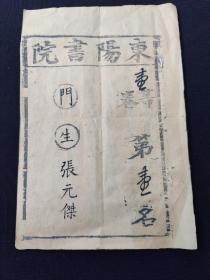 東陽書院
壹等 第壹名
門生 張元傑